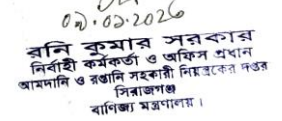 ০৯.০২.2026
রনি কুমার সরকার
নির্বাহী কর্মকর্তা ও অফিস প্রধান
আমদানি ও রপ্তানি সহকারী নিয়ন্ত্রকের দপ্তর
সিরাজগঞ্জ
বাণিজ্য মন্ত্রণালয়।